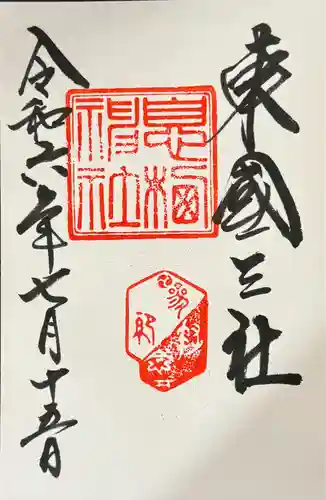 東國三社
息栖神社
令和六年七月十五日